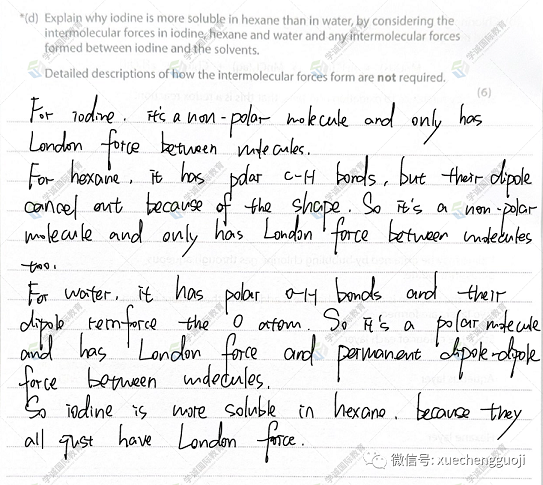 *(d) Explain why iodine is more soluble in hexane than in water, by considering the
intermolecular forces in iodine, hexane and water and any intermolecular forces
formed between iodine and the solvents.
Detailed descriptions of how the intermolecular forces form are not required.
(6)
For iodine, it's a non-polar molecule and only has
London force between molecules.
For hexane, it has polar C-H bonds, but their dipole
cancel out because of the shape. So it's a non-polar
molecule and only has London force between molecules
too.
For water, it has polar O-H bonds and their
dipole reinforce the O atom. So it's a polar molecule
and has London force and permanent dipole-dipole
force between molecules.
So iodine is more soluble in hexane, because they
all just have London force.
微信号: xuechengguoji